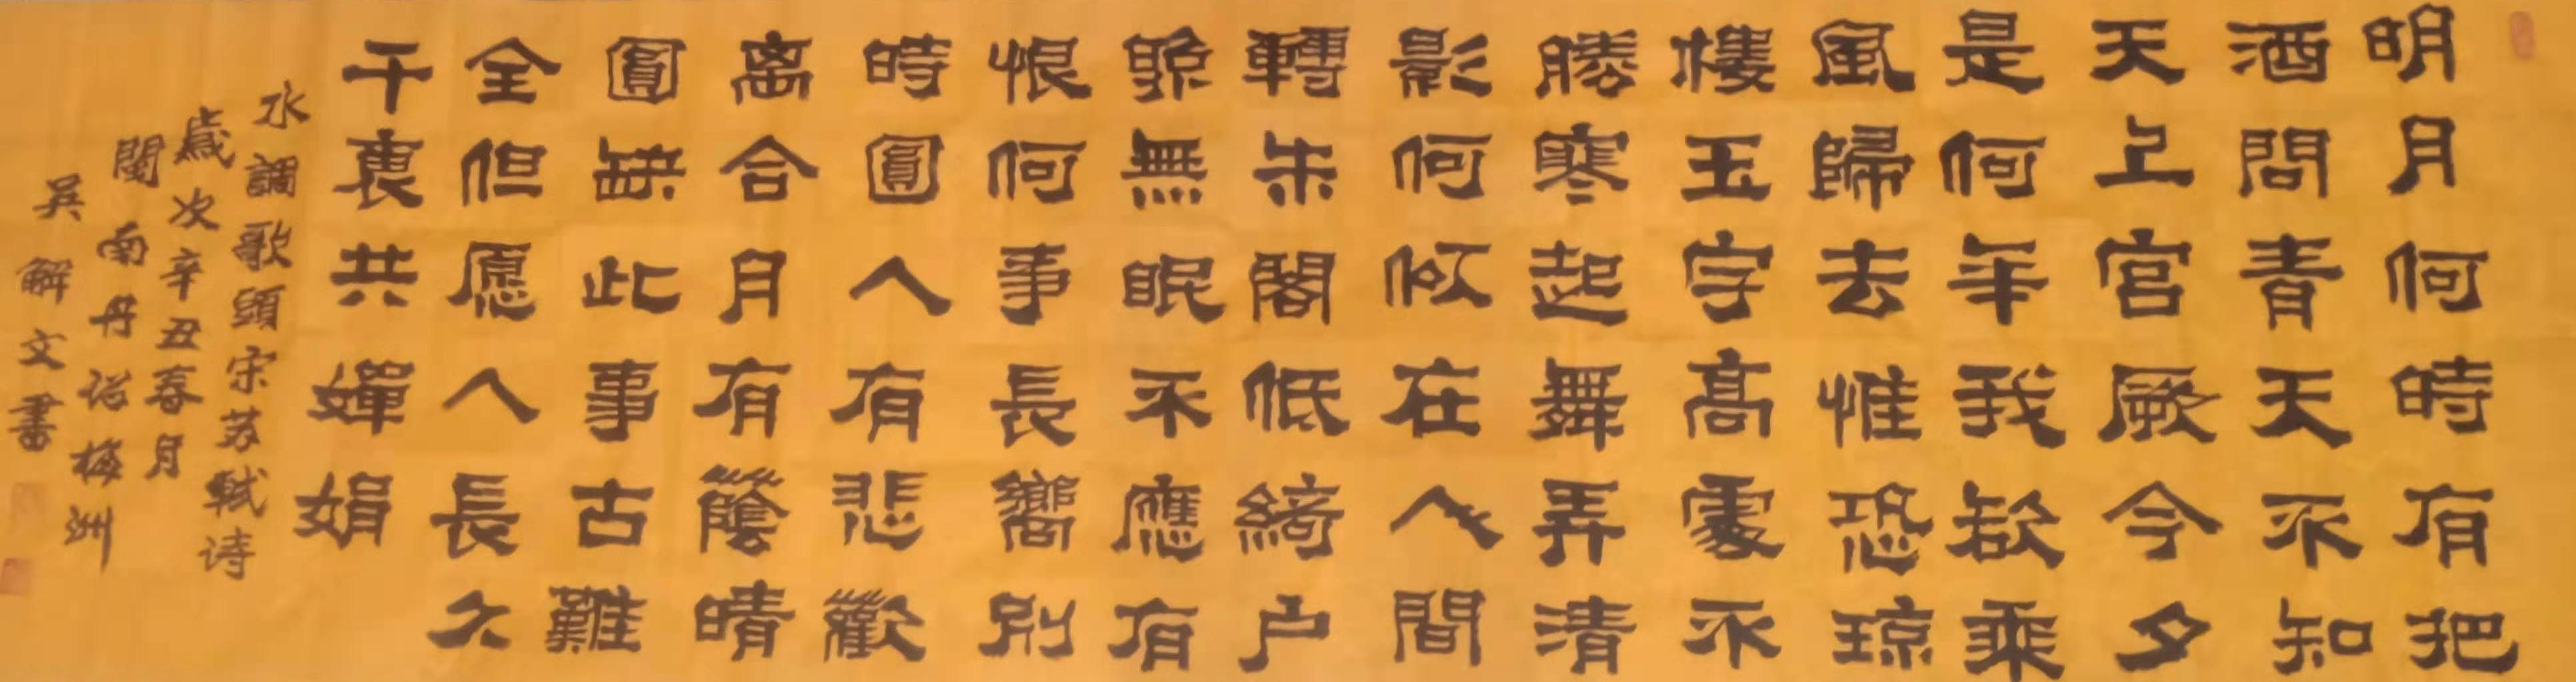 明月何時有把
酒問青天不知
天上宮厥今夕
是何年我欲乘
風歸去惟恐琼
樓玉宇高處不
勝寒起舞弄清
影何似在人間
轉朱閣低綺户
照無眠不應有
恨何事長嚮别
時圓人有悲歡
离合月有蔭晴
圓缺此事古難
全但愿人長久
千裏共嬋娟
水調歌頭宋苏軾诗
歲次辛丑春月
閩南丹诏梅洲
吴解文書